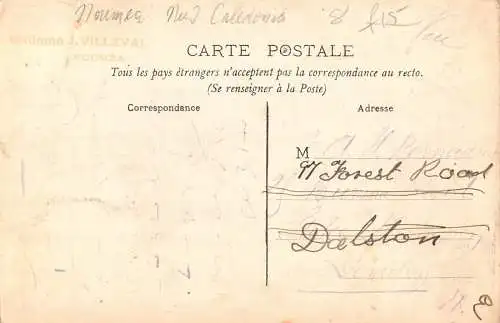 Noumea New Caledonia 8 £15
Madame J. VILLEVAL
NOUMÉA
CARTE POSTALE
Tous les pays étrangers n'acceptent pas la correspondance au recto.
(Se renseigner à la Poste)
Correspondance
Adresse
M
97 Forest Road
Dalston